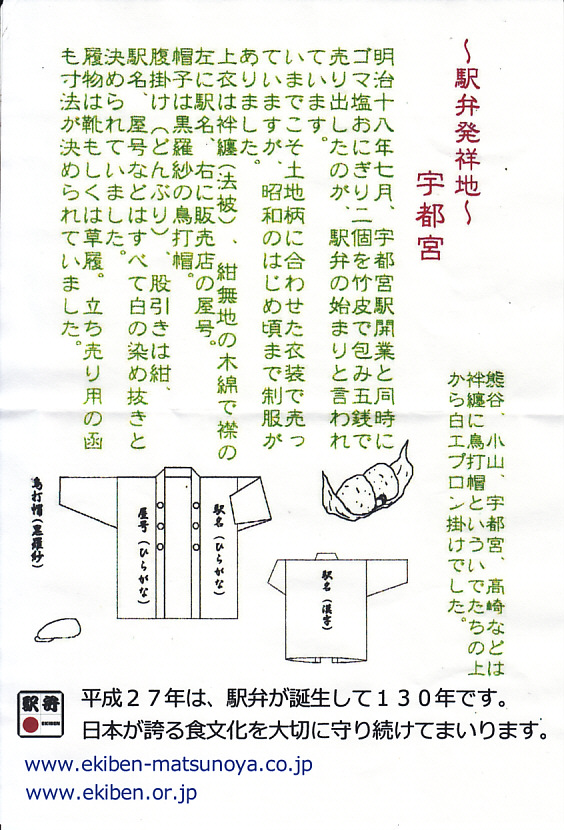 ～駅弁発祥地～
宇都宮
明治十八年七月、宇都宮駅開業と同時に
ゴマ塩おにぎり二個を竹皮で包み五銭で
売り出したのが、駅弁の始まりと言われ
ています。
いまでこそ土地柄に合わせた衣装で売っ
ていますが、昭和のはじめ頃まで制服が
ありました。
上衣は袢纏(法被)、紺無地の木綿で襟の
左に駅名、右に販売店の屋号。
帽子は黒羅紗の鳥打帽。
腹掛け(どんぶり)、股引きは紺、
駅名、屋号などはすべて白の染め抜きと
決められていました。
履物は靴もしくは草履。立ち売り用の函
も寸法が決められていました。
熊谷、小山、宇都宮、高崎などは
袢纏に鳥打帽といういでたちの上
から白エプロン掛けでした。
駅名(ひらがな)
屋号(ひらがな)
鳥打帽(黒羅紗)
駅名(漢字)
駅弁
EKIBEN
平成２７年は、駅弁が誕生して１３０年です。
日本が誇る食文化を大切に守り続けてまいります。
www.ekiben-matsunoya.co.jp
www.ekiben.or.jp